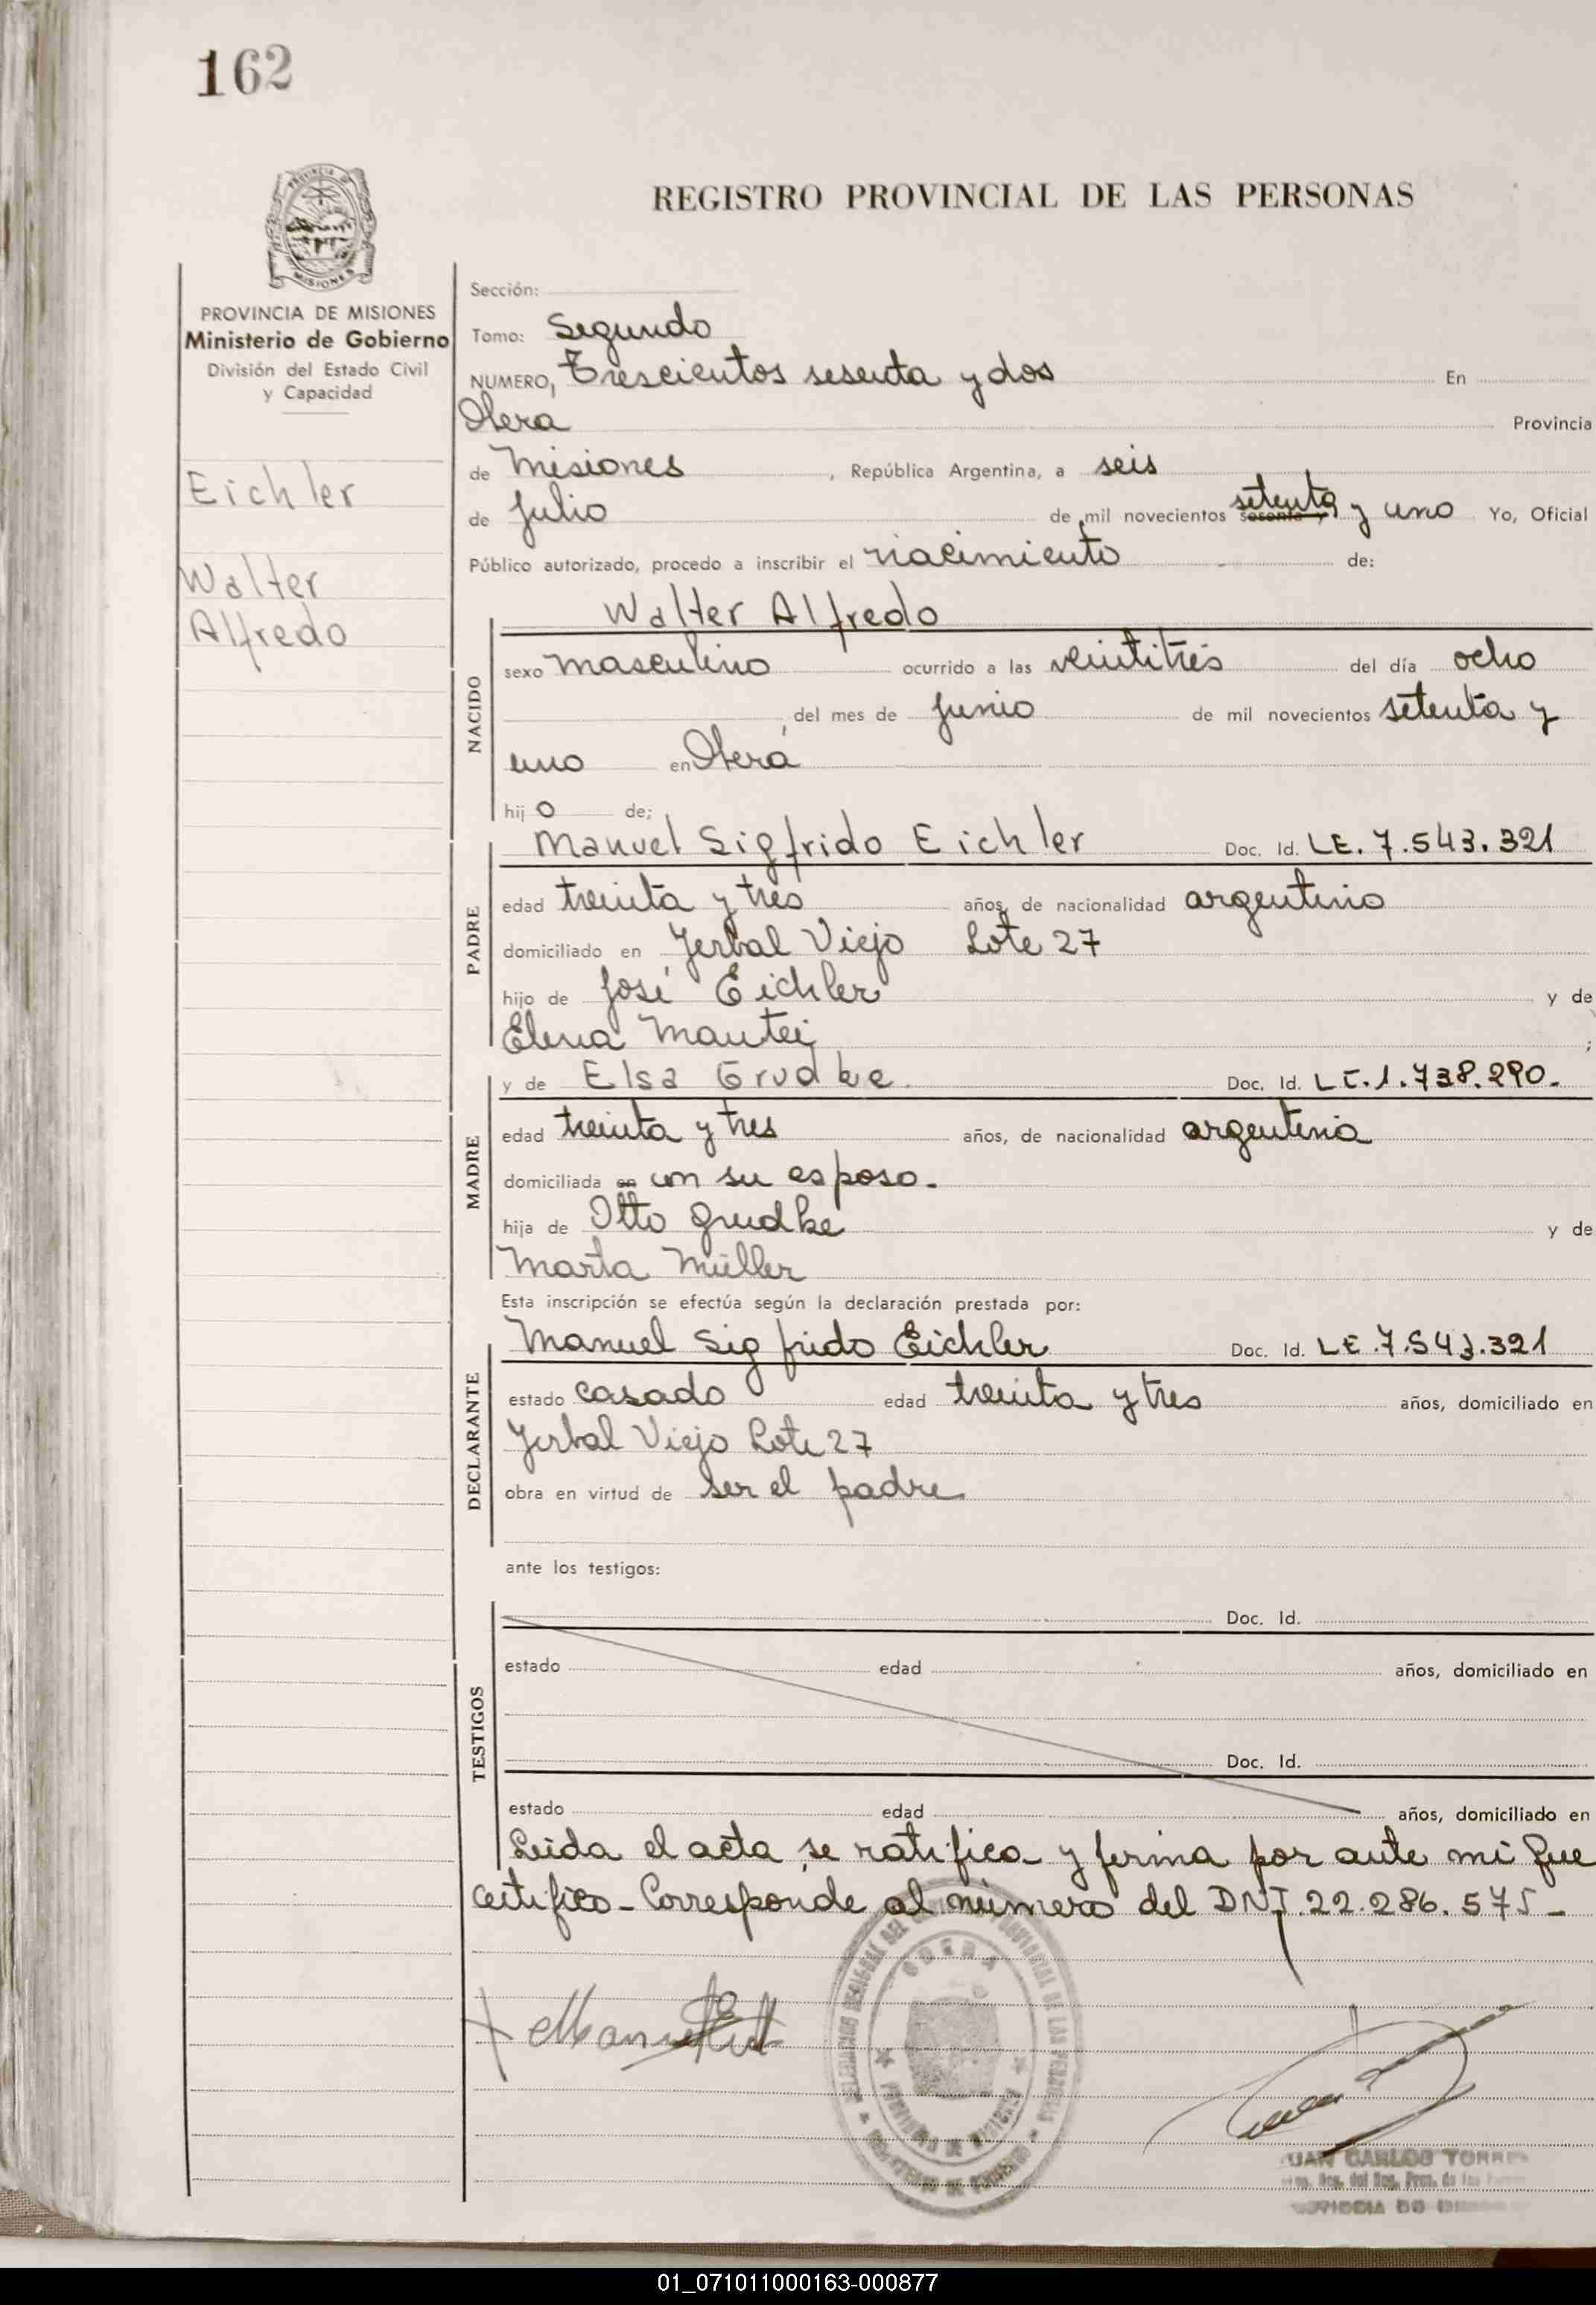 162
REGISTRO PROVINCIAL DE LAS PERSONAS
PROVINCIA DE MISIONES
Ministerio de Gobierno
División del Estado Civil
y Capacidad
Eichler
Walter
Alfredo
Sección:
Tomo: Segundo
NUMERO, Trescientos sesenta y dos En
Obera Provincia
de Misiones, República Argentina, a seis
de Julio de mil novecientos sesenta y setenta y uno Yo, Oficial
Público autorizado, procedo a inscribir el nacimiento de:
NACIDO
Walter Alfredo
sexo masculino ocurrido a las veintitrés del día ocho
del mes de junio de mil novecientos setenta y
uno en Oberá
hijo de;
PADRE
Manuel Sigfrido Eichler Doc. Id. LE. 7.543.321
edad treinta y tres años, de nacionalidad argentino
domiciliado en Yerbal Viejo Lote 27
hijo de José Eichler y de
Elena Mantei ;
MADRE
y de Elsa Grudke. Doc. Id. LC.1.738.290.-
edad treinta y tres años, de nacionalidad argentina
domiciliada en con su esposo.
hija de Otto Grudke y de
Marta Müller
Esta inscripción se efectúa según la declaración prestada por:
DECLARANTE
Manuel Sigfrido Eichler Doc. Id. LE.7.543.321
estado casado edad treinta y tres años, domiciliado en
Yerbal Viejo Lote 27
obra en virtud de ser el padre
ante los testigos:
TESTIGOS
Doc. Id.
estado edad años, domiciliado en
Doc. Id.
estado edad años, domiciliado en
Leida el acta se ratifica y firma por ante mi Que
certifico - Corresponde al número del DNI.22.286.575 -
OBERA
PROVINCIA DE MISIONES
JUAN CARLOS TORRES
01_071011000163-000877